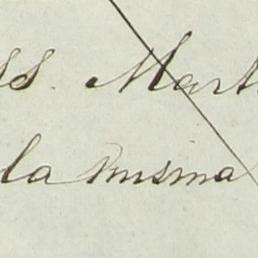 ss. Mart
la misma